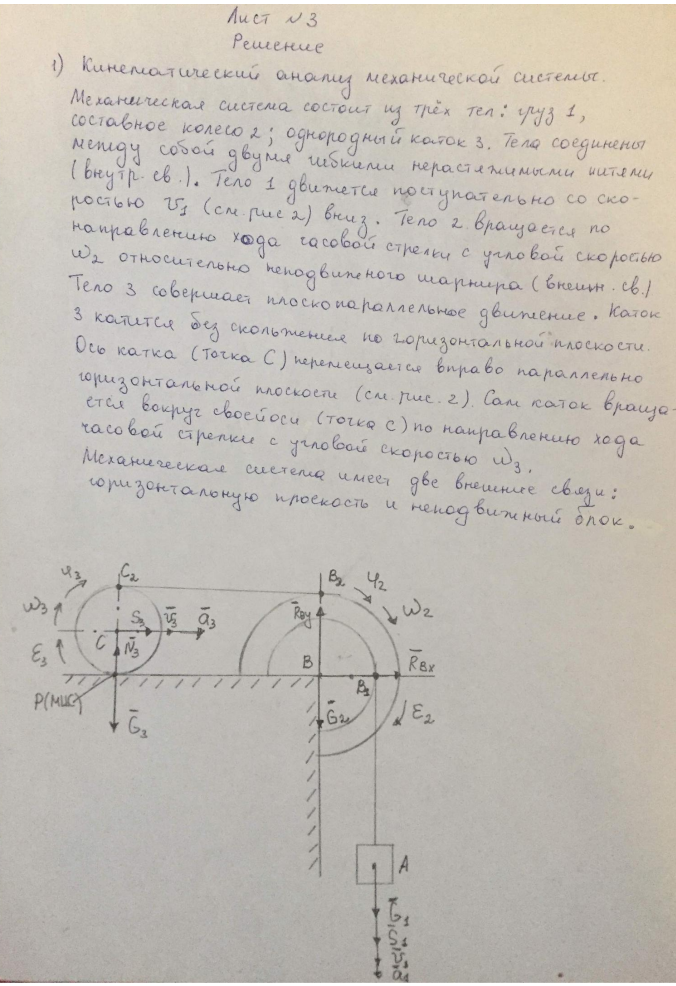 Лист №3
Решение
1) Кинематический анализ механической системы.
Механическая система состоит из трёх тел: груз 1,
составное колесо 2; однородный каток 3. Тела соединены
между собой двумя гибкими нерастяжимыми нитями
(внутр. св.). Тело 1 движется поступательно со ско-
ростью V₁ (см. рис 2) вниз. Тело 2 вращается по
направлению хода часовой стрелки с угловой скоростью
ω₂ относительно неподвижного шарнира (внешн. св.)
Тело 3 совершает плоскопараллельное движение. Каток
3 катится без скольжения по горизонтальной плоскости.
Ось катка (точка С) перемещается вправо параллельно
горизонтальной плоскости (см. рис. 2). Сам каток враща-
ется вокруг своей оси (точка С) по направлению хода
часовой стрелки с угловой скоростью ω₃.
Механическая система имеет две внешние связи:
горизонтальную плоскость и неподвижный блок.
φ₃ C₂ B₂ φ₂
ω₃ R̄By ω₂
S₃ v̄₃ ā₃
C N̄₃
ε₃ B B₁ R̄Bx
P(МЦС) Ḡ₂ ε₂
Ḡ₃
A
Ḡ₁
S̄₁
v̄₁
ā₁